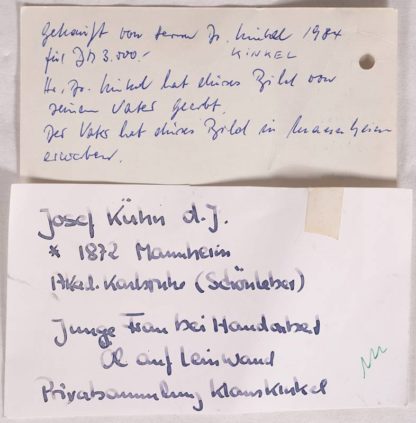 Gekauft von Herrn Dr. Kinkel 1984
für DM 3.000.-
KINKEL
Hr. Dr. Kinkel hat dieses Bild von
seinem Vater geerbt.
Der Vater hat dieses Bild in Mannheim
erworben.
Josef Kühn d.J.
* 1872 Mannheim
Akad. Karlsruhe (Schönleber)
Junge Frau bei Handarbeit
Öl auf Leinwand
Privatsammlung Klaus Kinkel